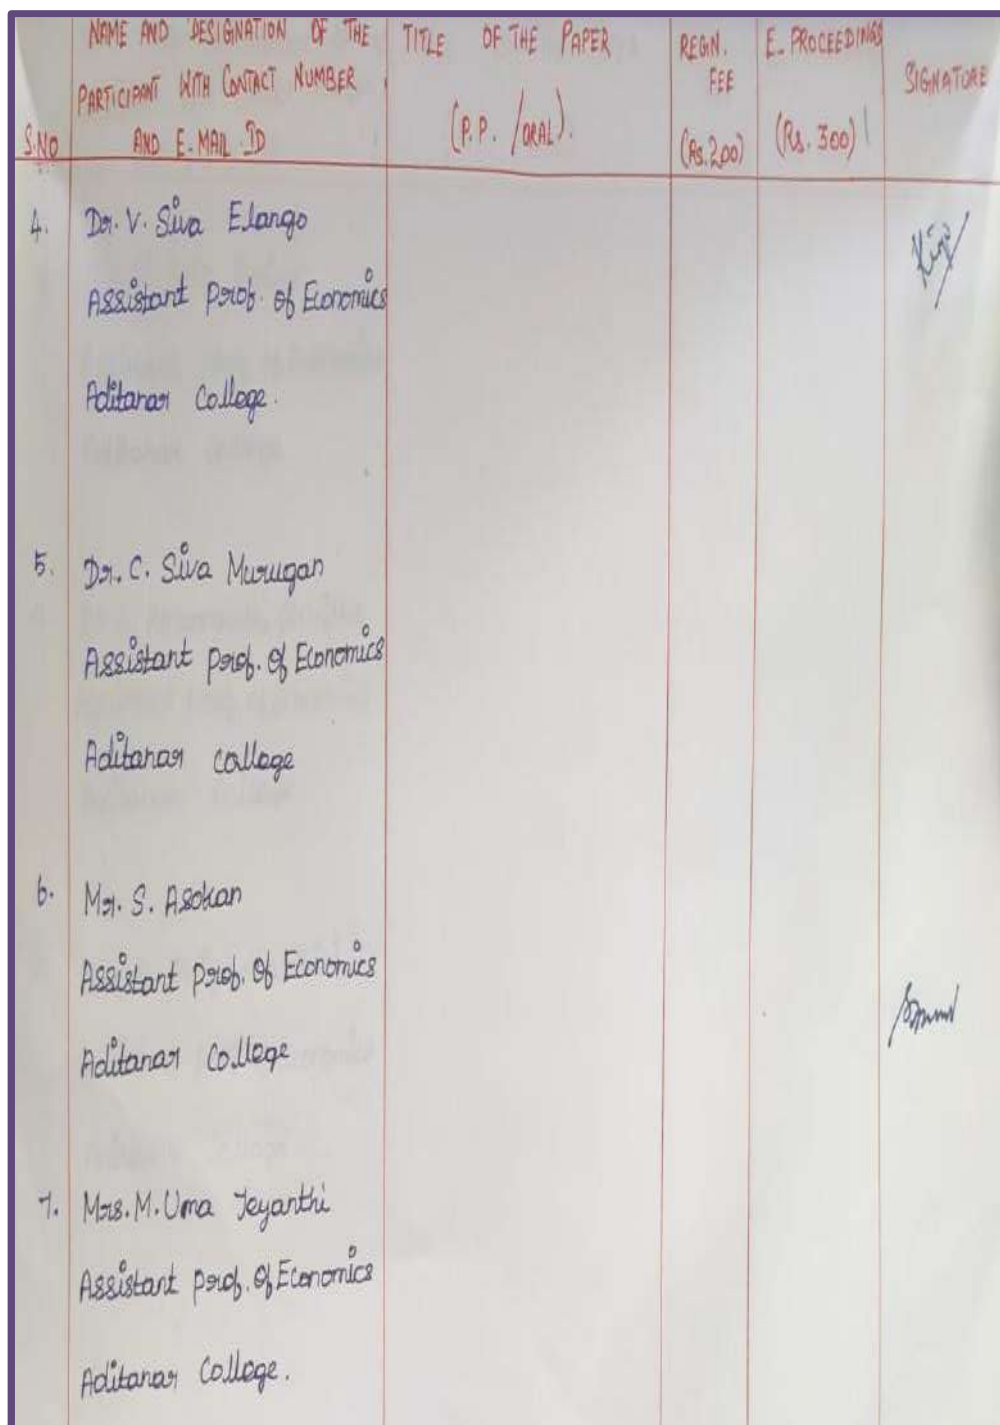 S.NO
NAME AND DESIGNATION OF THE
PARTICIPANT WITH CONTACT NUMBER
AND E.MAIL ID
TITLE OF THE PAPER
(P.P. /ORAL).
REGN.
FEE
(Rs.200)
E-PROCEEDINGS
(Rs. 300)
SIGNATURE
4. Dr. V. Siva Elango
Assistant prof. of Economics
Aditanar College.
5. Dr. C. Siva Murugan
Assistant prof. of Economics
Aditanar college
6. Mr. S. Asokan
Assistant prof. of Economics
Aditanar College
7. Mrs. M. Uma Jeyanthi
Assistant prof. of Economics
Aditanar College.